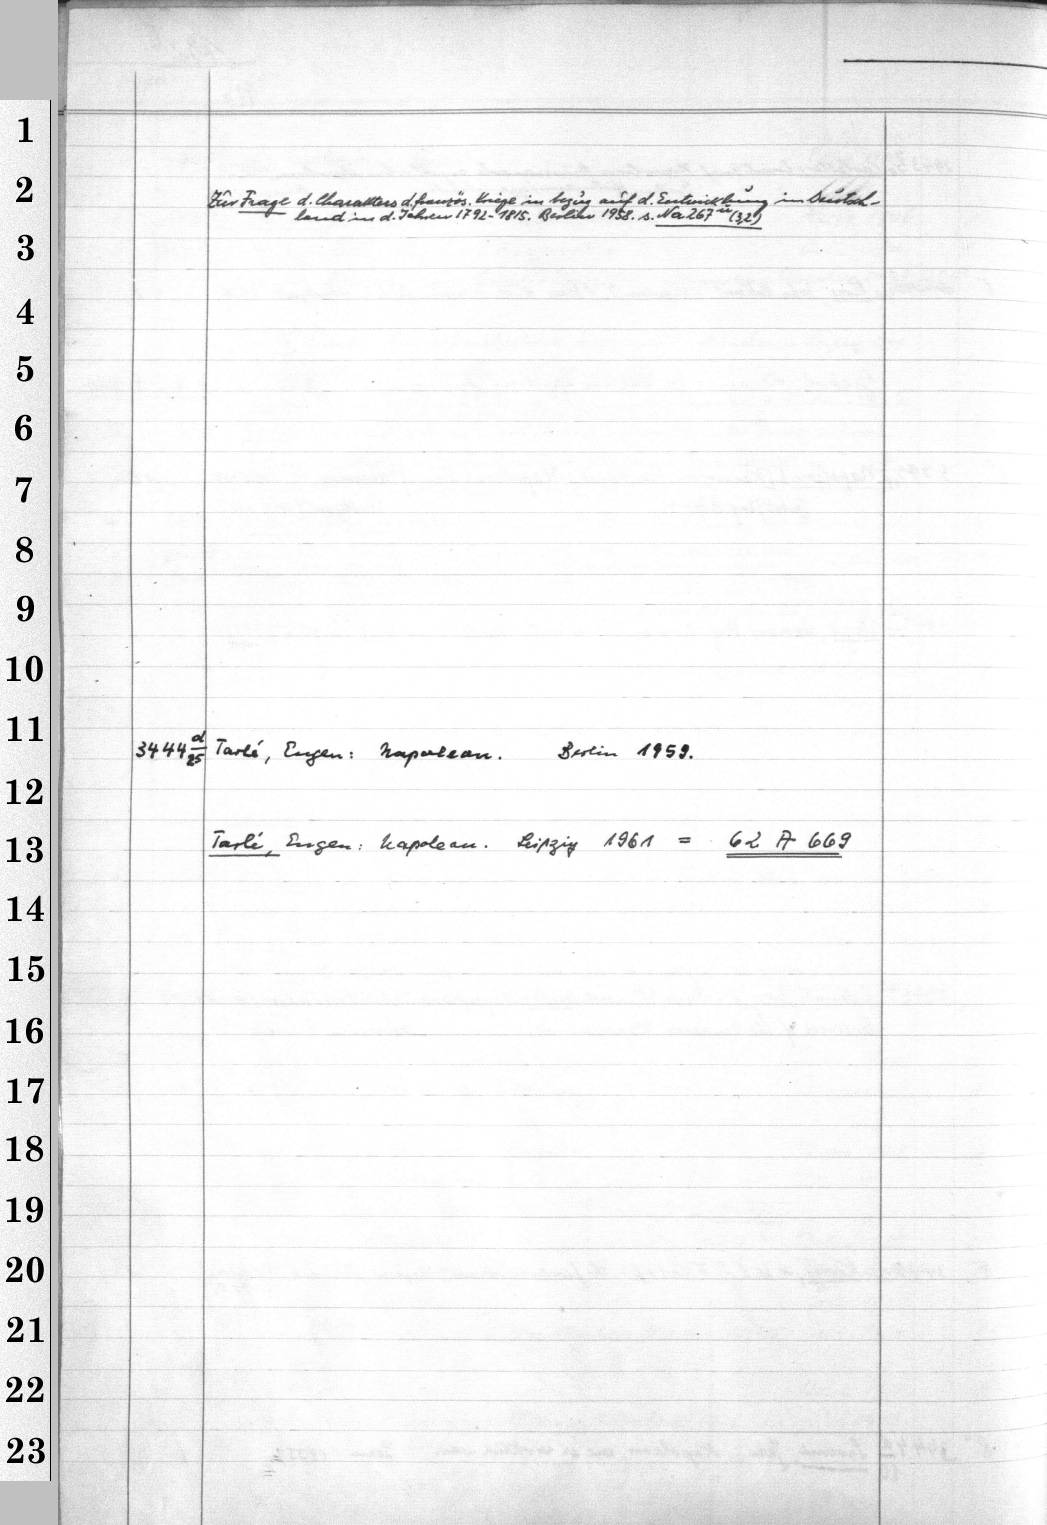 1
2
Zur Frage d. Charakters d. französ. Kriege in bezug auf d. Entwicklung in Deutsch-
land in d. Jahren 1792-1815. Berlin 1958. s. Na 267 (3,2)
3
4
5
6
7
8
9
10
11
3444 d/25 Tarlé, Eugen: Napoleon. Berlin 1959.
12
13
Tarlé, Eugen: Napoleon. Leipzig 1961 = 62 A 669
14
15
16
17
18
19
20
21
22
23